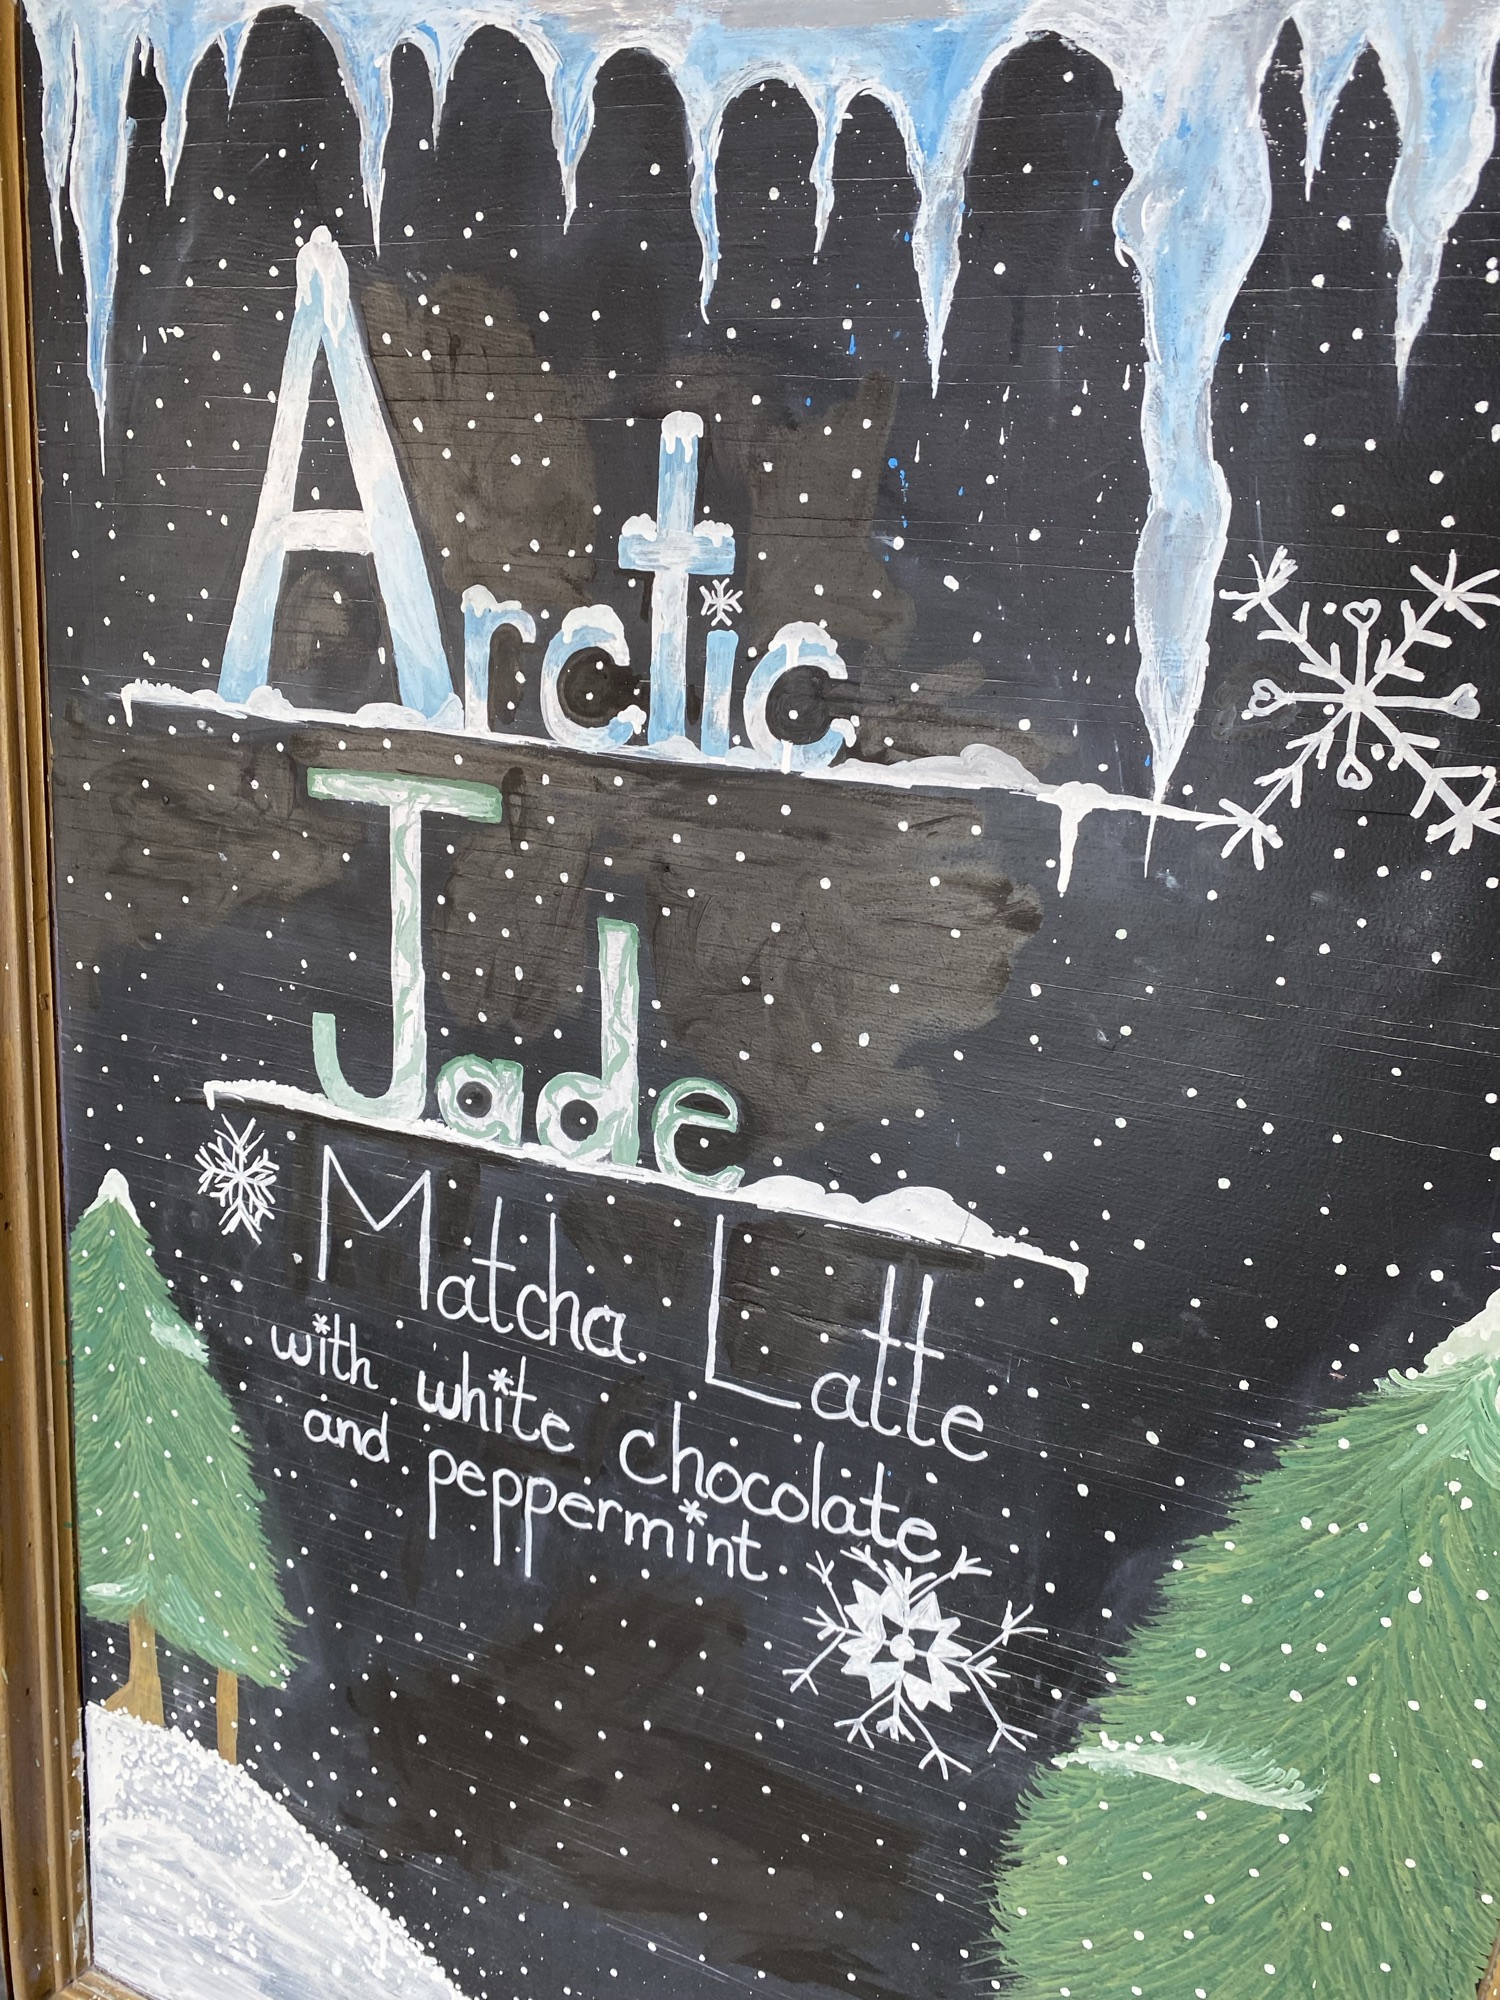 Arctic
Jade
Matcha Latte
with white chocolate
and peppermint.